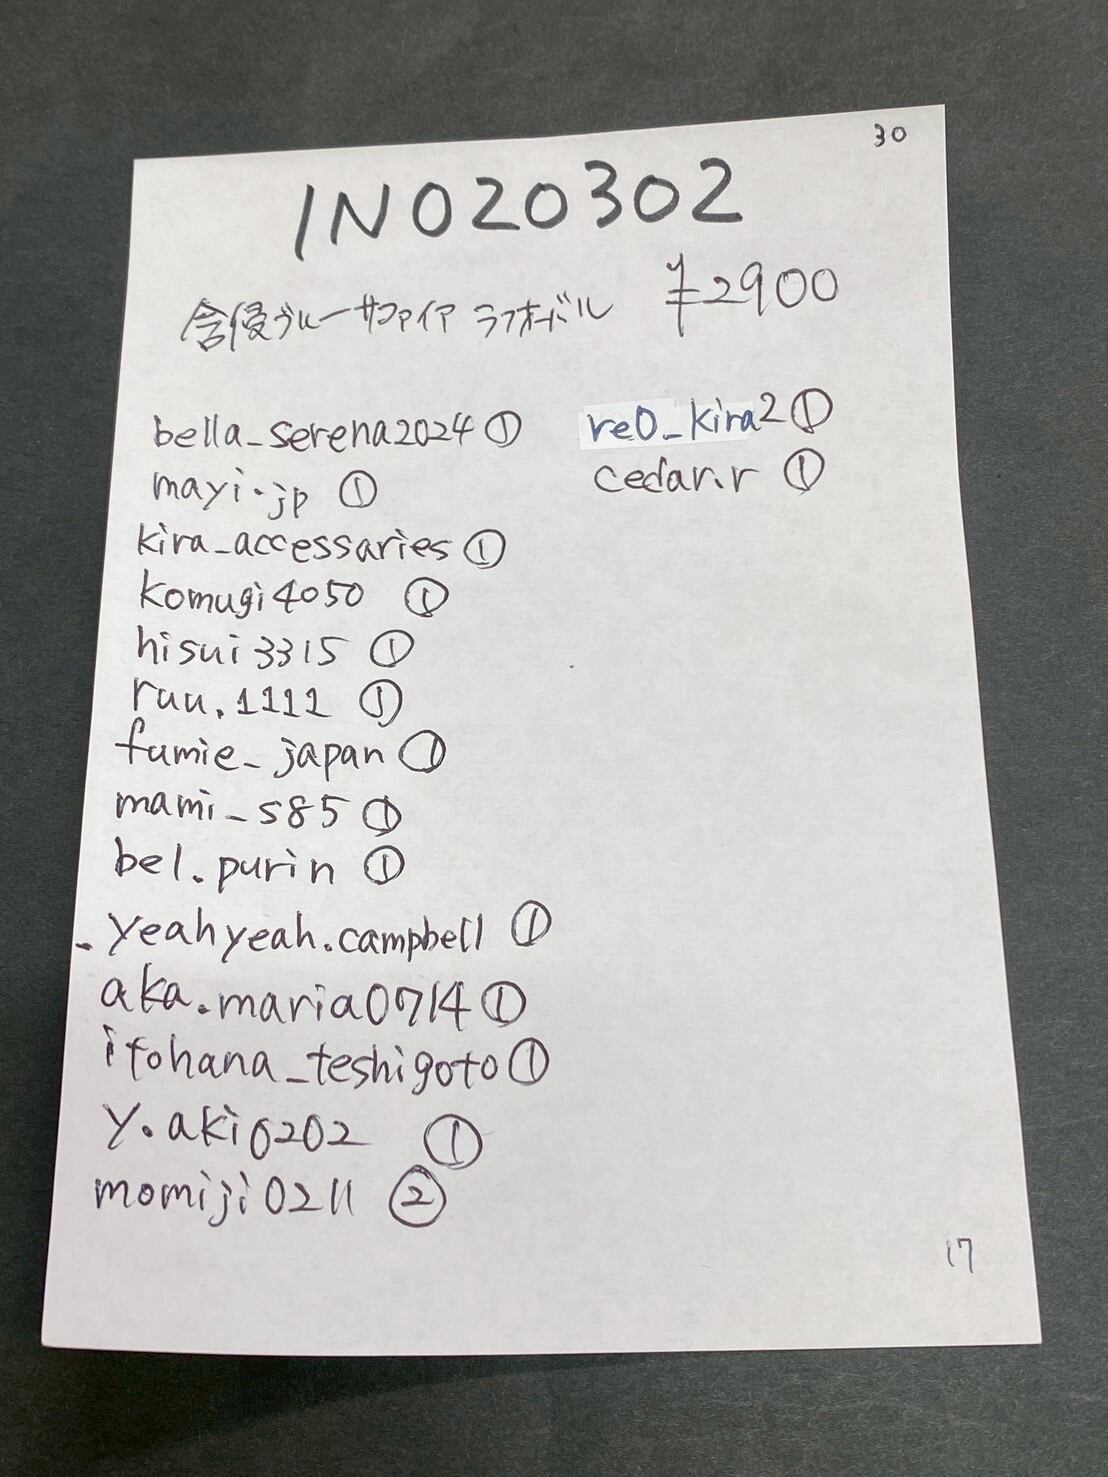 30
IN020302
含侵ブルーサファイア ラフオーバル ¥2900
bella_serena2024 ①
mayi.jp ①
kira_accessaries ①
komugi4050 ①
hisui3315 ①
ruu.1111 ①
fumie_japan ①
mami_s85 ①
bel.purin ①
_yeahyeah.campbell ①
aka.maria0714 ①
itohana_teshigoto ①
y.aki0202 ①
momiji0211 ②
re0_kira2 ①
cedar.r ①
17